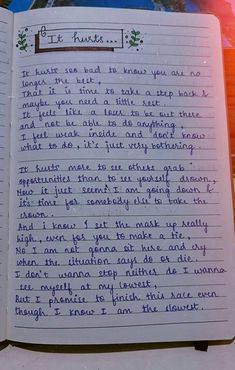 It hurts...
It hurts soo bad to know you are no
longer the best,
That it is time to take a step back &
maybe you need a little rest.
It feels like a loser to be out there
and not be able to do anything,
I feel weak inside and don't know
what to do, it's just very bothering.
It hurts more to see others grab
opportunities than to see yourself drown,
Now it just seems I am going down &
it's time for somebody else to take the
crown.
And i know I set the mark up really
high, even for you to make a tie,
No I am not gonna sit here and cry
when the situation says do or die.
I don't wanna stop neither do I wanna
see myself at my lowest,
But I promise to finish this race even
though I know I am the slowest.